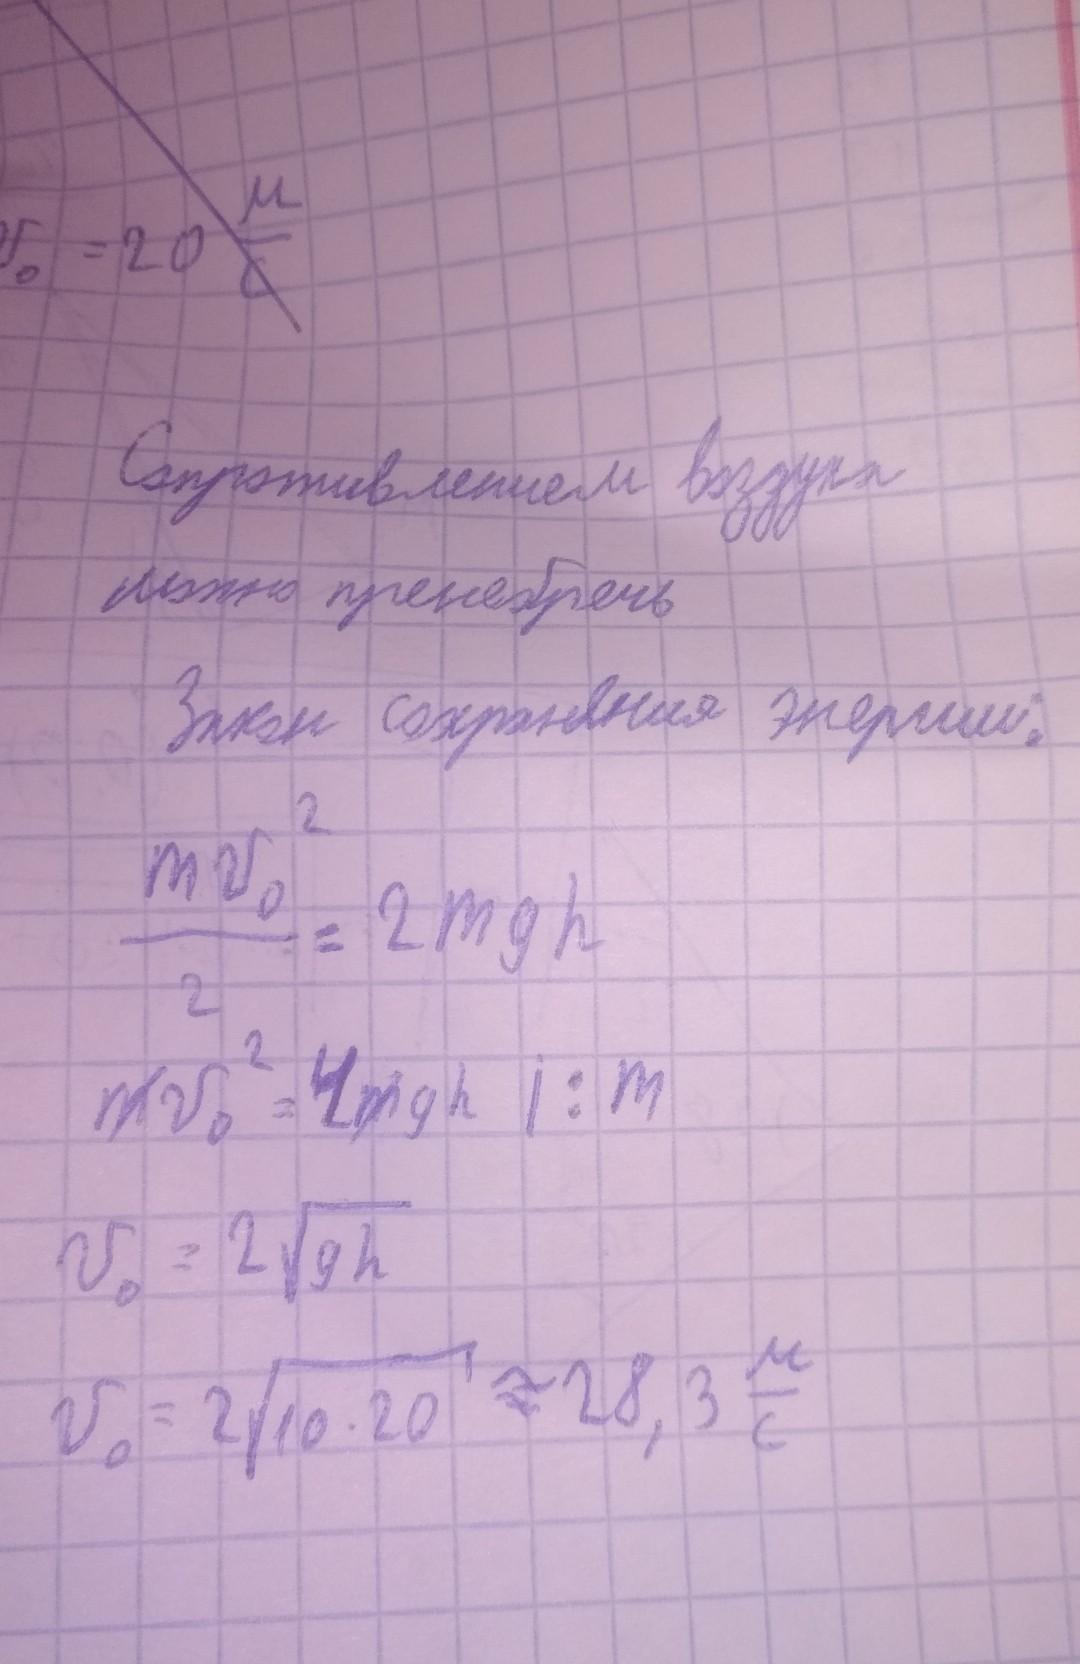 v₀ = 20 м/с
Сопротивлением воздуха
можно пренебречь
Закон сохранения энергии:
mv₀²/2 = 2mgh
mv₀² = 4mgh | : m
v₀ = 2√gh
v₀ = 2√10·20 ≈ 28,3 м/с